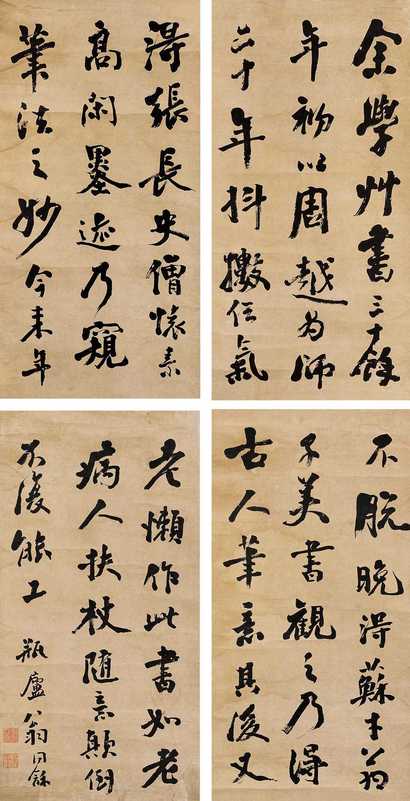 余學艸書三十餘
年初以周越為師
二十年抖擻俗氣
不脫晚得蘇才翁
子美書觀之乃得
古人筆意其後又
得張長史僧懷素
高閑墨迹乃窺
筆法之妙今來年
老懶作此書如老
病人扶杖隨意顛倒
不復能工
瓶廬翁同龢